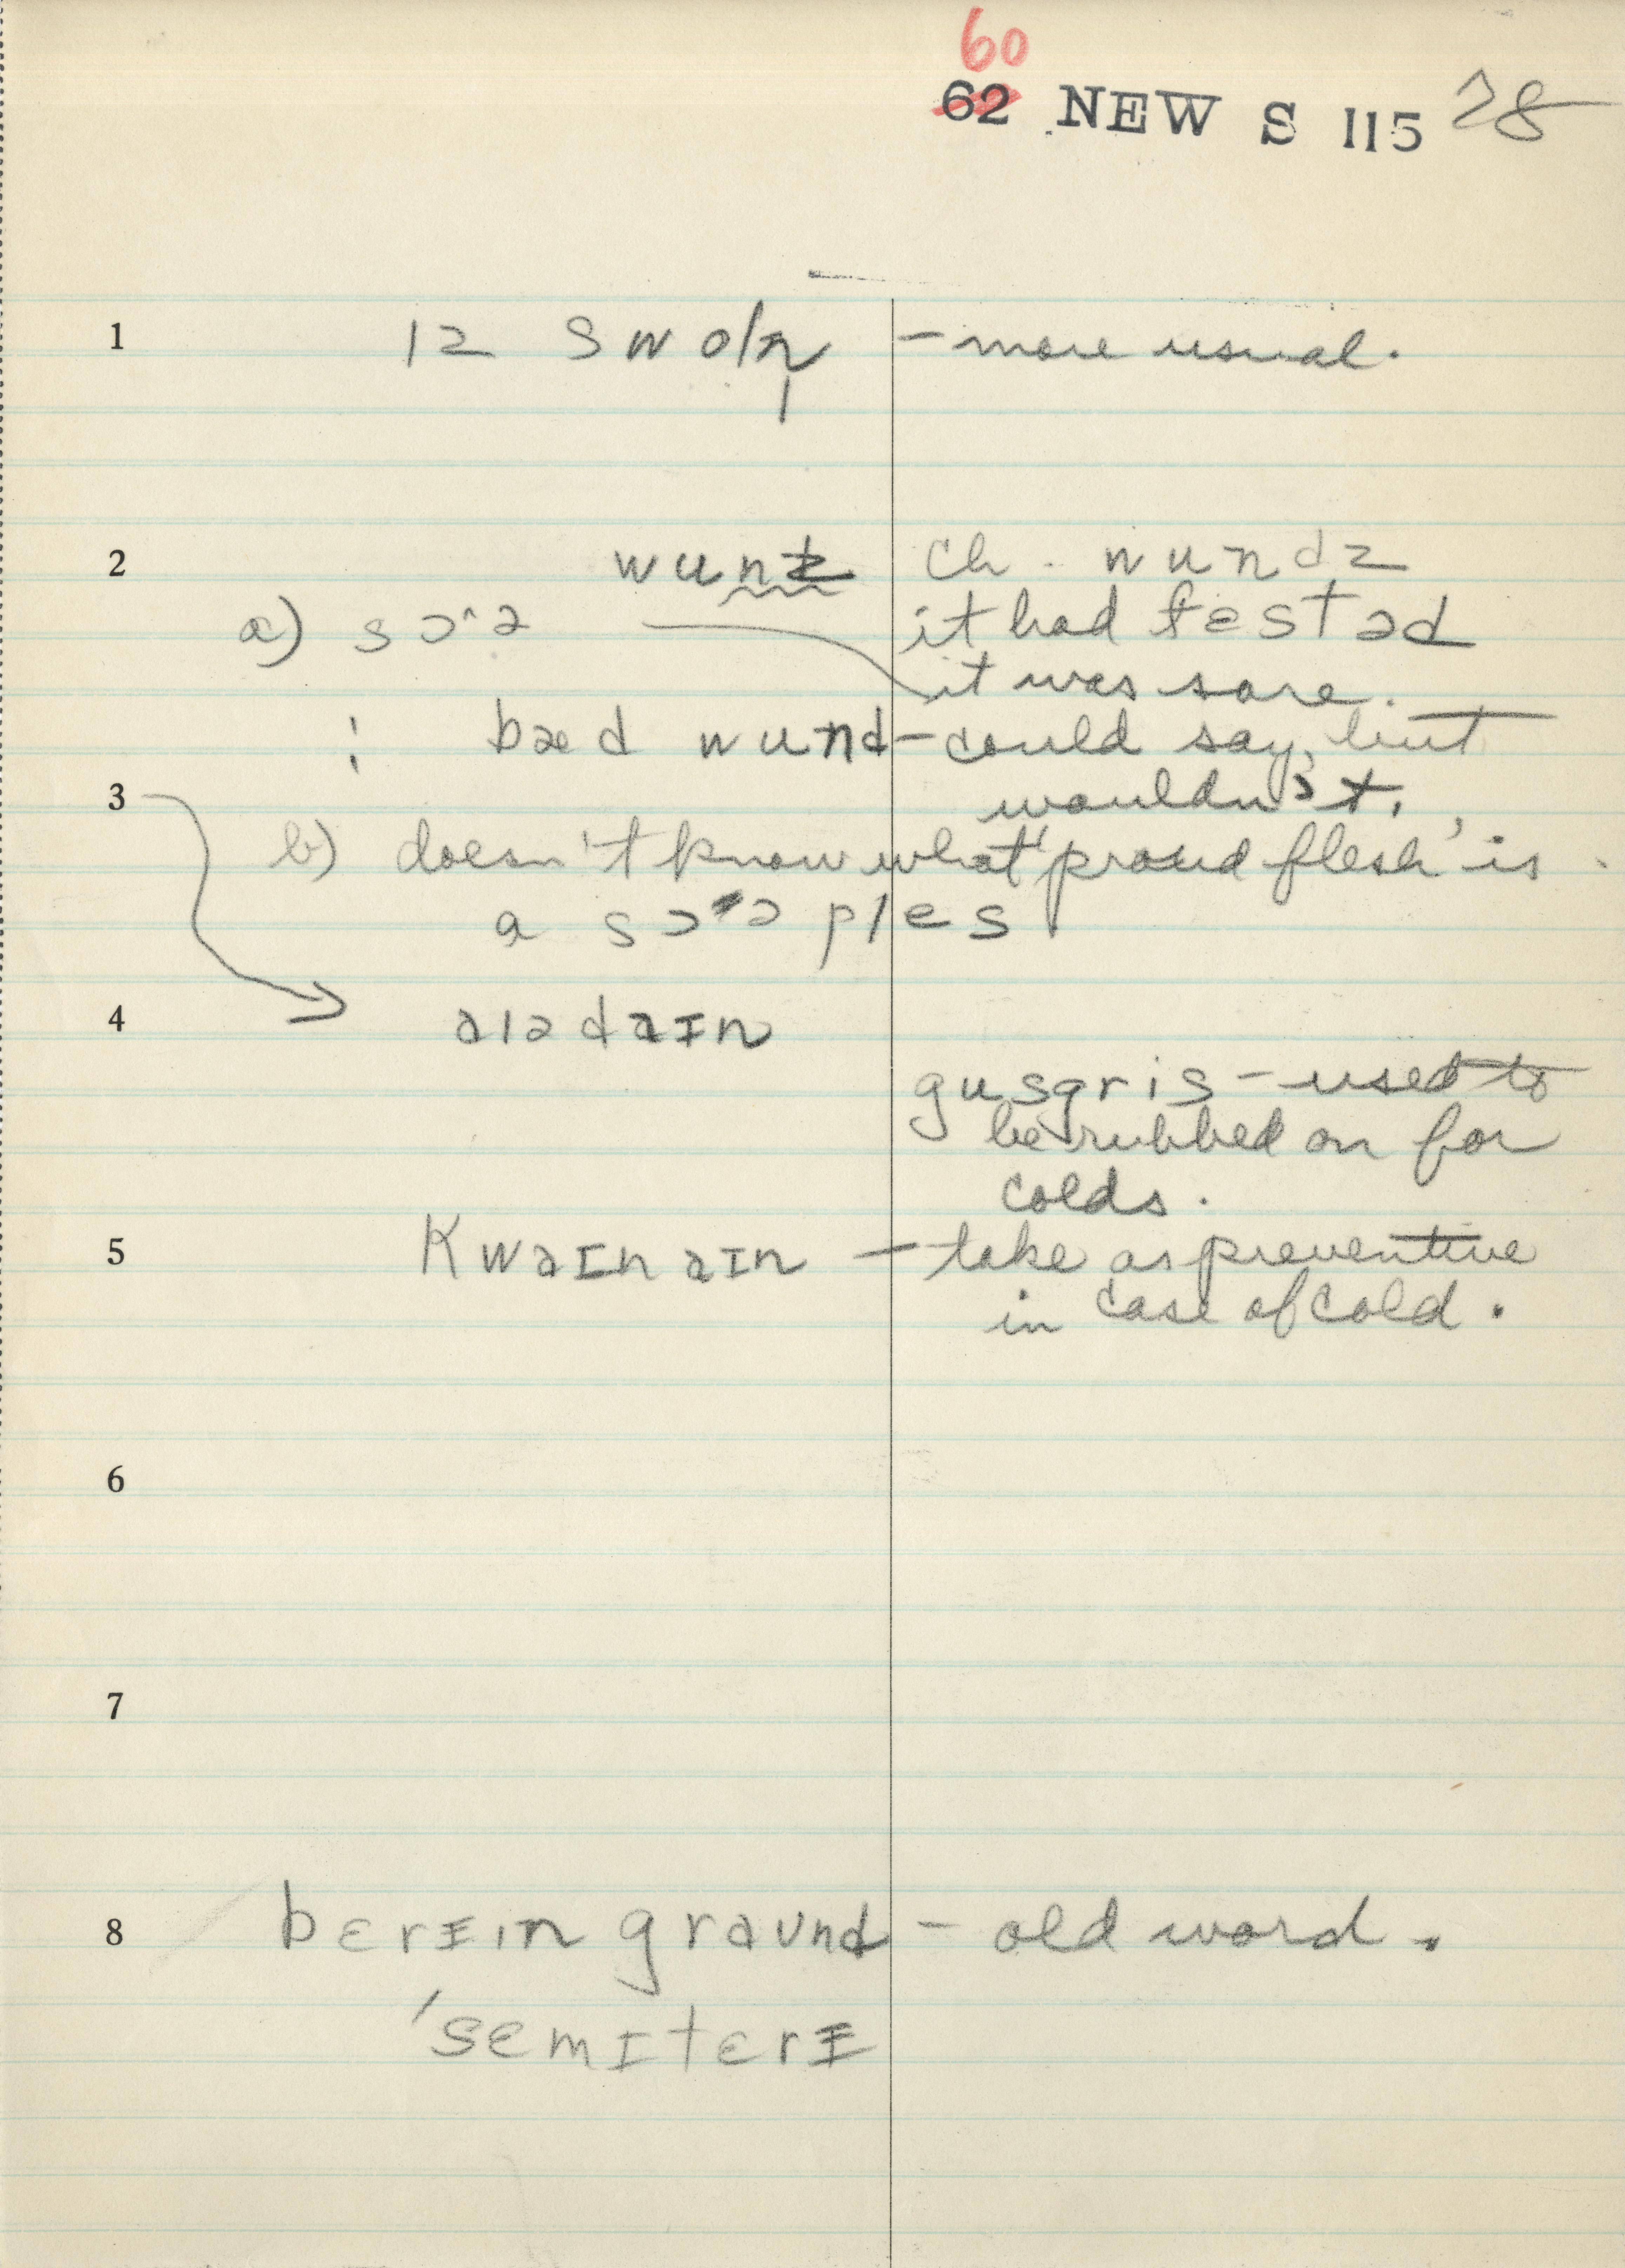 60
62 NEW S 115 28
1 ɪz swoln̩ – more usual.
2 wunz ch. wundz
a) sɔᵊə it had festəd
it was sore.
: bæd wund – could say, but
3 wouldn't.
b) doesn't know what "proud flesh" is.
a sɔᵊə ples
4 aɪədaɪn
gusgris – used to
be rubbed on for
colds.
5 kwaɪnaɪn – take as preventive
in case of cold.
6
7
8 bɛrɪɪn graʊnd – old word.
ˈsemɪtɛrɪ